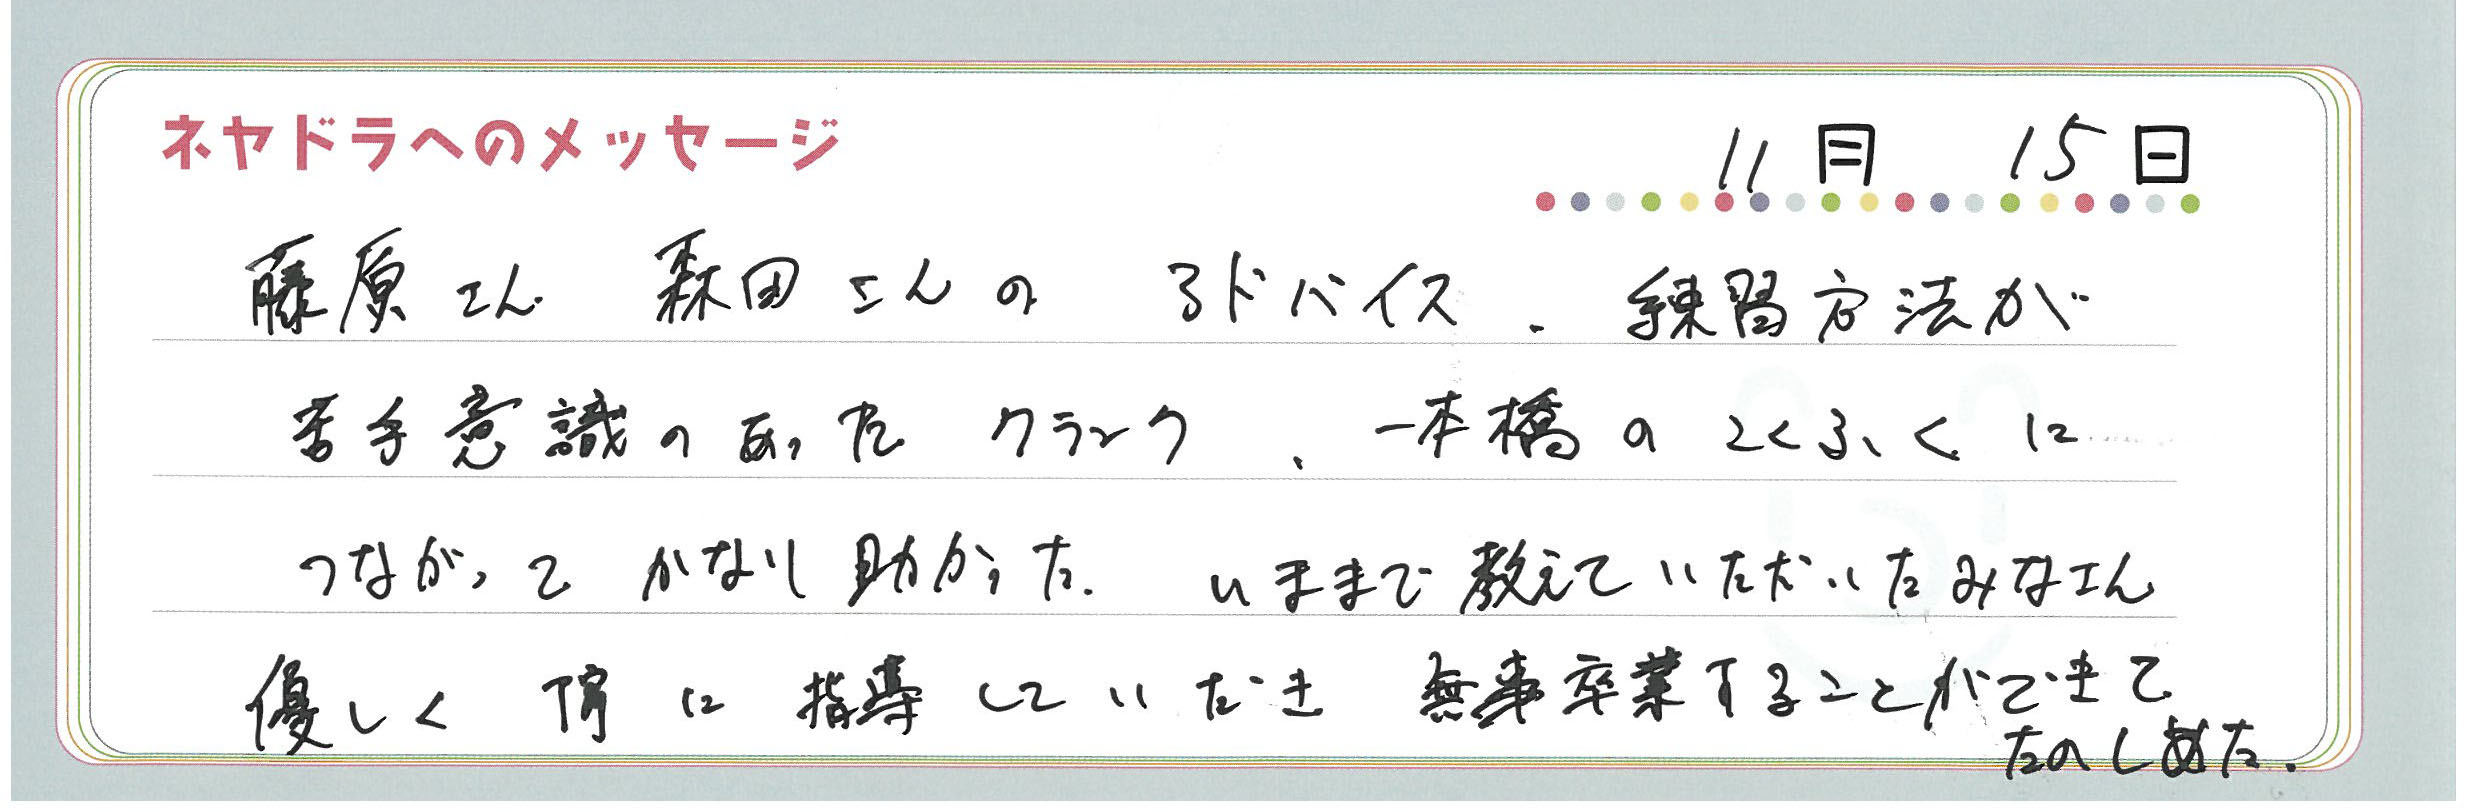 ネヤドラへのメッセージ
11月 15日
藤原さん 森田さんの アドバイス、練習方法が
苦手意識のあった クランク、一本橋のこくふくに
つながって かなり助かった. いままで教えていただいたみなさん
優しく 丁寧に 指導していただき 無事卒業することができて
たのしめた.